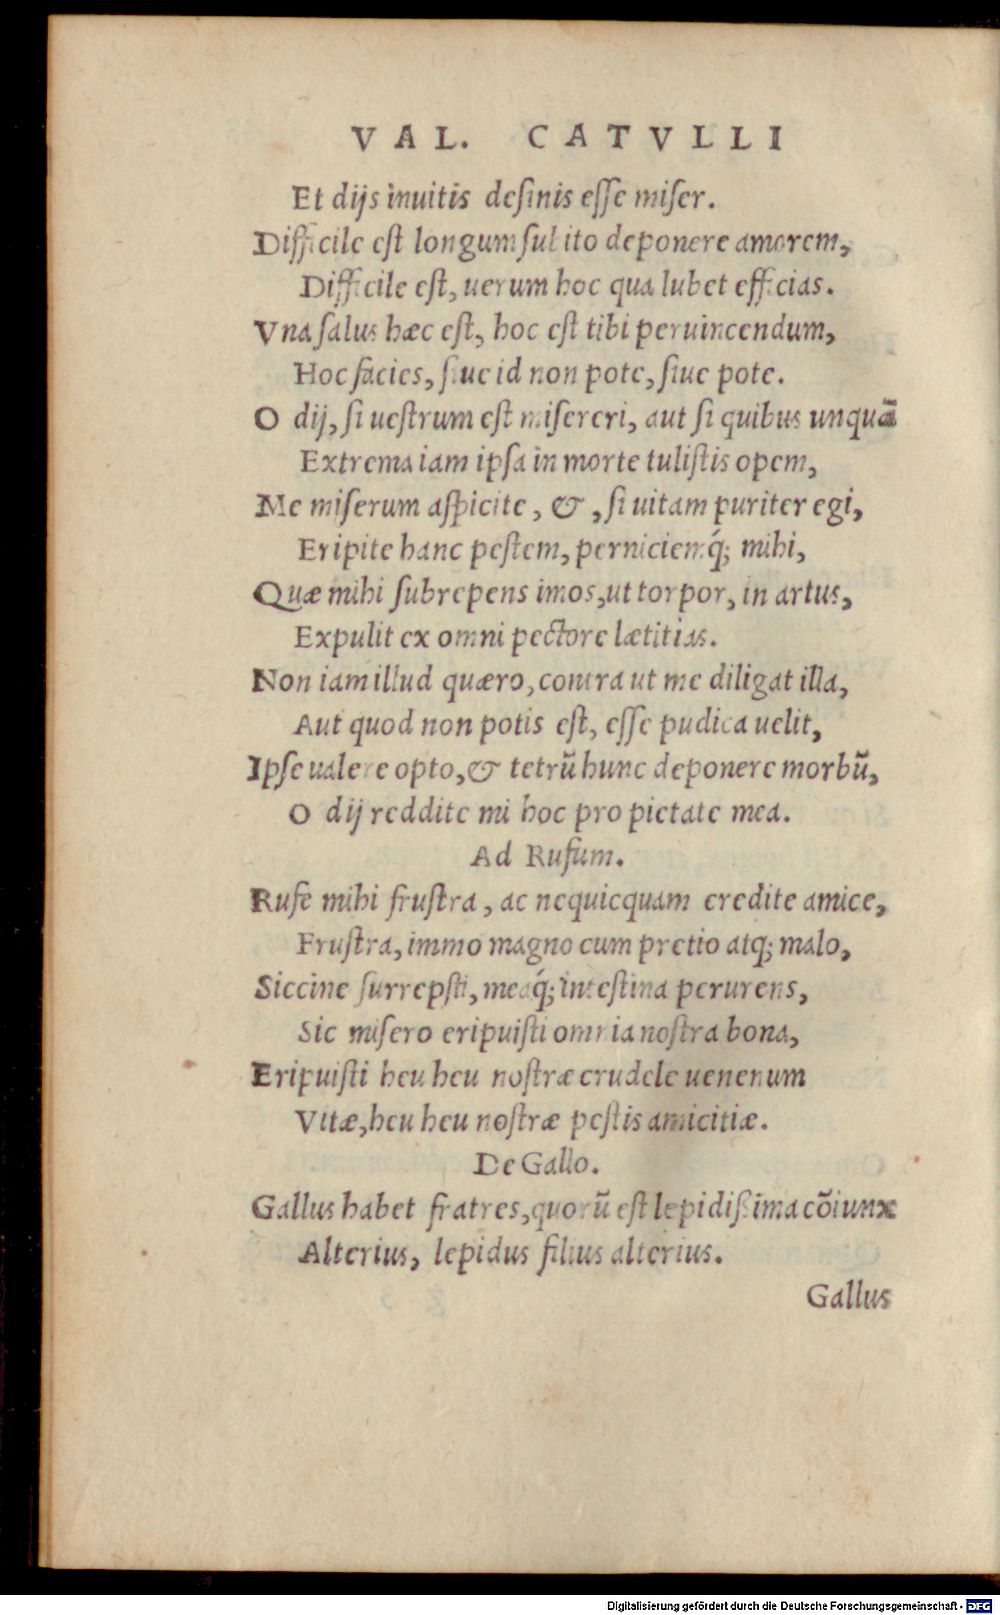 VAL. CATVLLI
Et dijs inuitis desinis esse miser.
Difficile est longum subito deponere amorem,
Difficile est, uerum hoc qua lubet efficias.
Vna salus hæc est, hoc est tibi peruincendum,
Hoc facies, siue id non pote, siue pote.
O dij, si uestrum est misereri, aut si quibus unquā
Extrema iam ipsa in morte tulistis opem,
Me miserum aspicite, &, si uitam puriter egi,
Eripite hanc pestem, perniciemq́; mihi,
Quæ mihi subrepens imos, ut torpor, in artus,
Expulit ex omni pectore lætitias.
Non iam illud quæro, contra ut me diligat illa,
Aut quod non potis est, esse pudica uelit,
Ipse ualere opto, & tetrū hunc deponere morbū,
O dij reddite mi hoc pro pietate mea.
Ad Rufum.
Rufe mihi frustra, ac nequicquam credite amice,
Frustra, immo magno cum pretio atq; malo,
Siccine surrepsti, meaq́; intestina perurens,
Sic misero eripuisti omnia nostra bona,
Eripuisti heu heu nostræ crudele uenenum
Vitæ, heu heu nostræ pestis amicitiæ.
De Gallo.
Gallus habet fratres, quorū est lepidißima cōiunx
Alterius, lepidus filius alterius.
Gallus
Digitalisierung gefördert durch die Deutsche Forschungsgemeinschaft - DFG